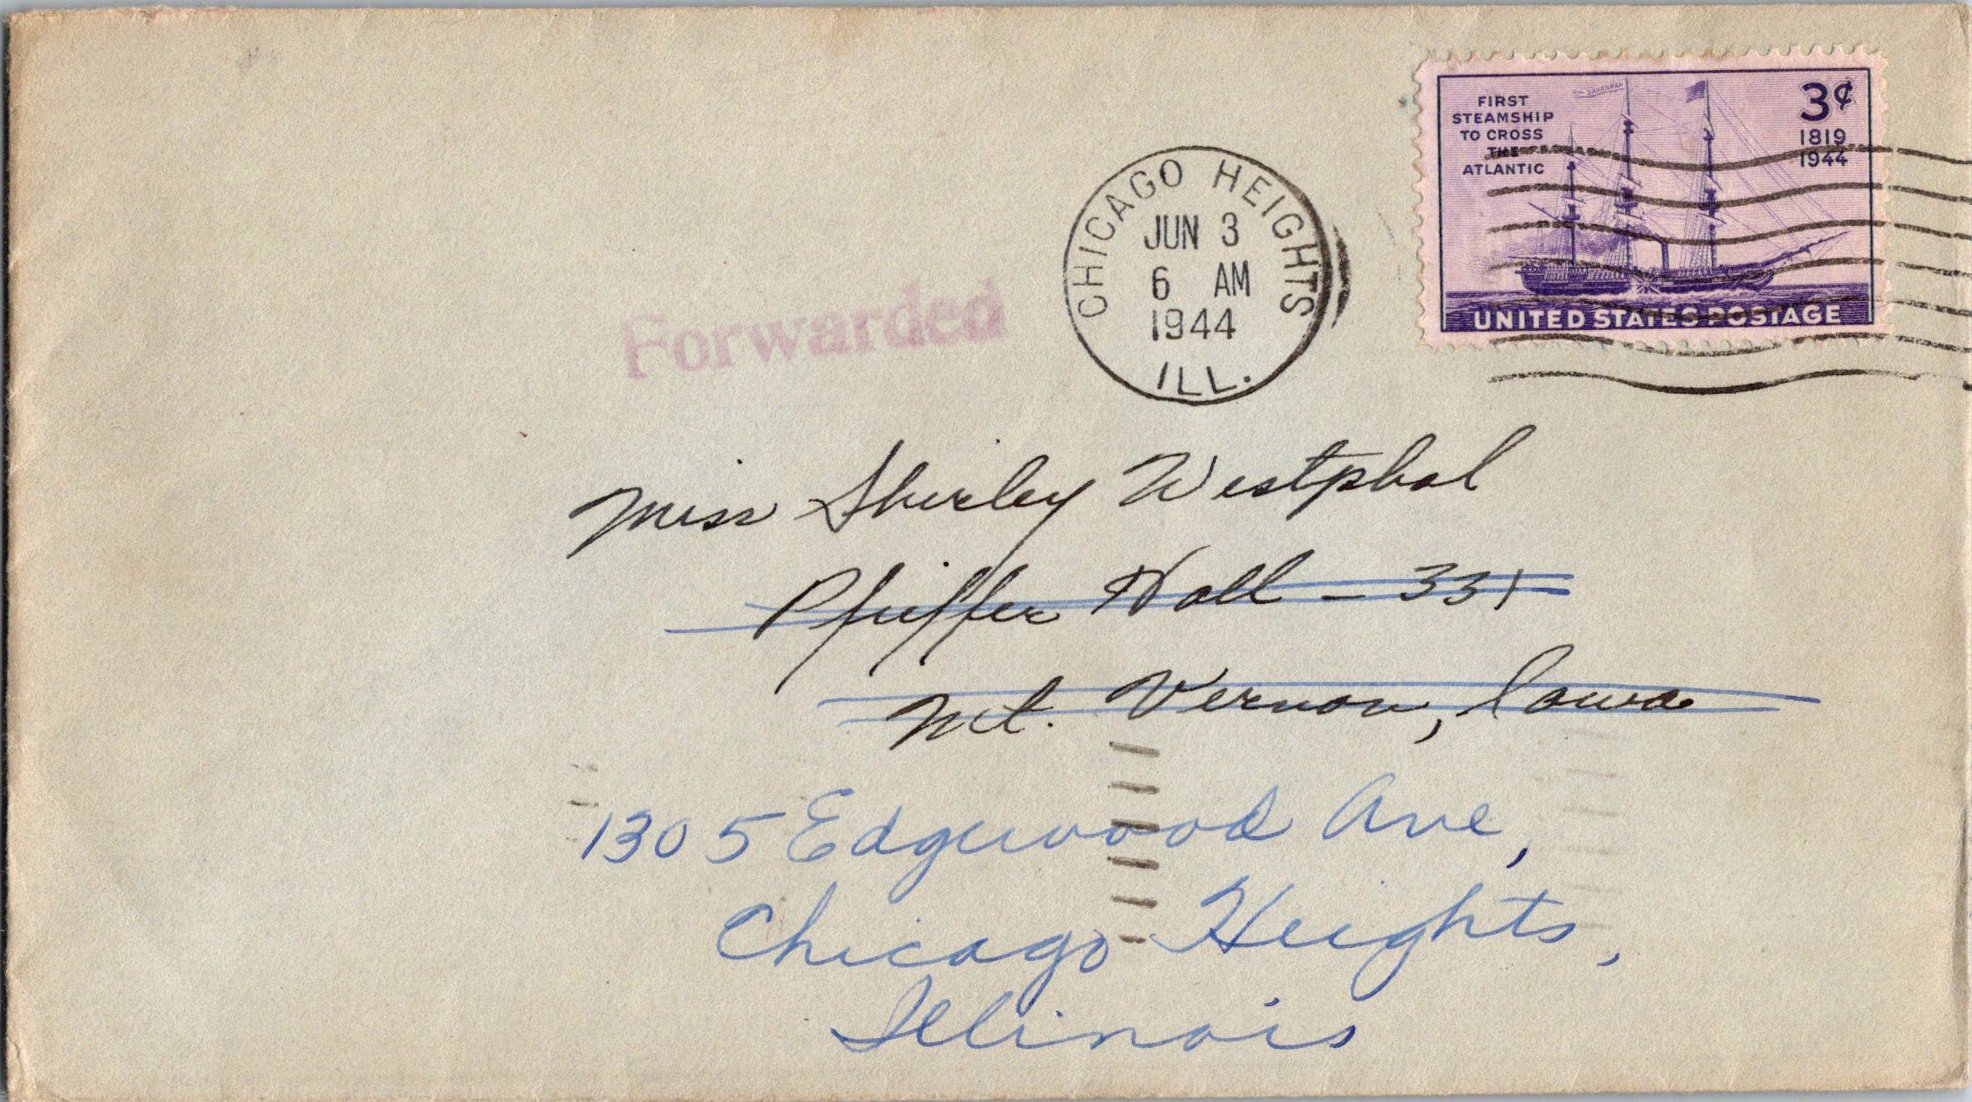 FIRST
STEAMSHIP
TO CROSS
THE
ATLANTIC
SAVANNAH
3¢
1819
1944
UNITED STATES POSTAGE
CHICAGO HEIGHTS
JUN 3
6 AM
1944
ILL.
Forwarded
Miss Shirley Westphal
Pfeiffer Hall - 331
Mt. Vernon, Iowa
1305 Edgewood Ave,
Chicago Heights,
Illinois